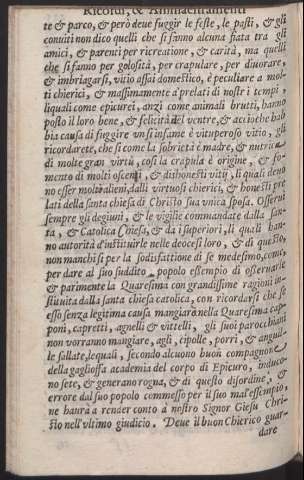 Ricordi, & Ammaestramenti
te & parco, & però deue fuggir le feste, le pasti, & gli
conuiti non dico quelli che si fanno alcuna fiata tra gli
amici, & parenti per ricreatione, & carità, ma quelli
che si fanno per golosità, per crapulare, per diuorare,
& imbriagarsi, vitio assai domestico, è peculiare a mol-
ti chierici, & massimamente a prelati di nostri tempi,
liquali come epicurei, anzi come animali brutti, hanno
posto il loro bene, & felicità nel ventre, & acciò che hab
bia causa di fuggire vn sì infame è vituperoso vitio, gli
ricordarete, che si come la sobrietà è madre, & nutrice
di molte gran virtù, così la crapula è origine, & fo-
mento di molti osceni, & dishonesti vitij, li quali deuo
no esser molto alieni, dalli virtuosi chierici, & honesti pre
lati della santa chiesa di Christo sua vnica sposa. Osserui
sempre gli degiuni, & le vigilie commandate dalla san-
ta, & Catolica Chiesa, & da i superiori, li quali han-
no autorità d'instituirle nelle deocesi loro, & di questo,
non manchi si per la sodisfattione di se medesimo, come
per dare al suo suddito popolo essempio di osseruarle
& parimente la Quaresima con grandissime ragioni in-
stituita dalla santa chiesa catolica, con ricordarsi che se
esso senza legitima causa mangiarà nella Quaresima cap-
poni, capretti, agnelli & vittelli, gli suoi parocchiani
non vorranno mangiare, agli, cipolle, porri, & anguil-
le sallate, lequali, secondo alcuono buon compagnone
della gagliossa academia del corpo di Epicuro, induco-
no sete, & generano rogna, & di questo disordine, &
errore dal suo popolo commesso per il suo mal'essempio,
ne haurà a render conto à nostro Signor Giesu Chri-
sto nell'vltimo giudicio. Deue il buon Chierico guar-
dare